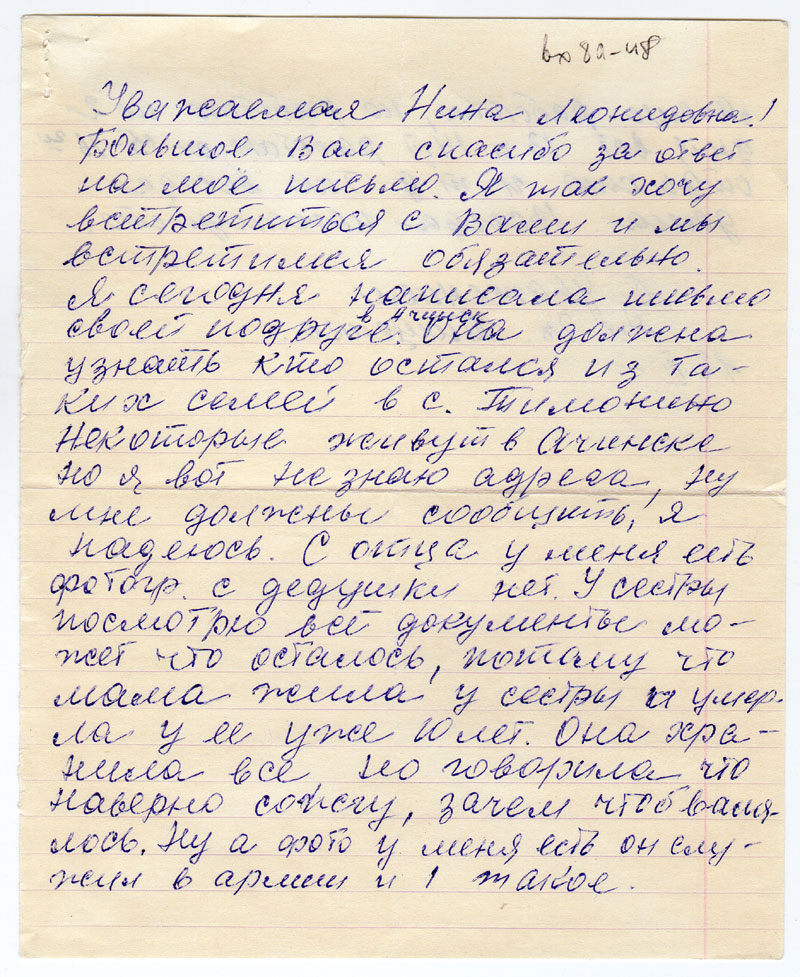 вх 82-48
Уважаемая Нина Леонидовна!
Большое Вам спасибо за ответ
на моё письмо. Я так хочу
встретиться с Вами и мы
встретимся обязательно.
Я сегодня написала письмо
в Ачинск
своей подруге. Она должна
узнать кто остался из та-
ких семей в с. Тимонино
Некоторые живут в Ачинске
но я вот не знаю адреса, ну
мне должны сообщить, я
надеюсь. С отца у меня есть
фотогр. с дедушки нет. У сестры
посмотрю все документы мо-
жет что осталось, потому что
мама жила у сестры и умер-
ла у ее уже 10 лет. Она хра-
нила все но говорила что
наверно сожгу, зачем чтоб валя-
лось. Ну а фото у меня есть он слу-
жил в армии и 1 такое.